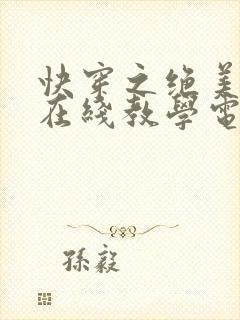 快穿之绝美
在綫教學電
孫毅